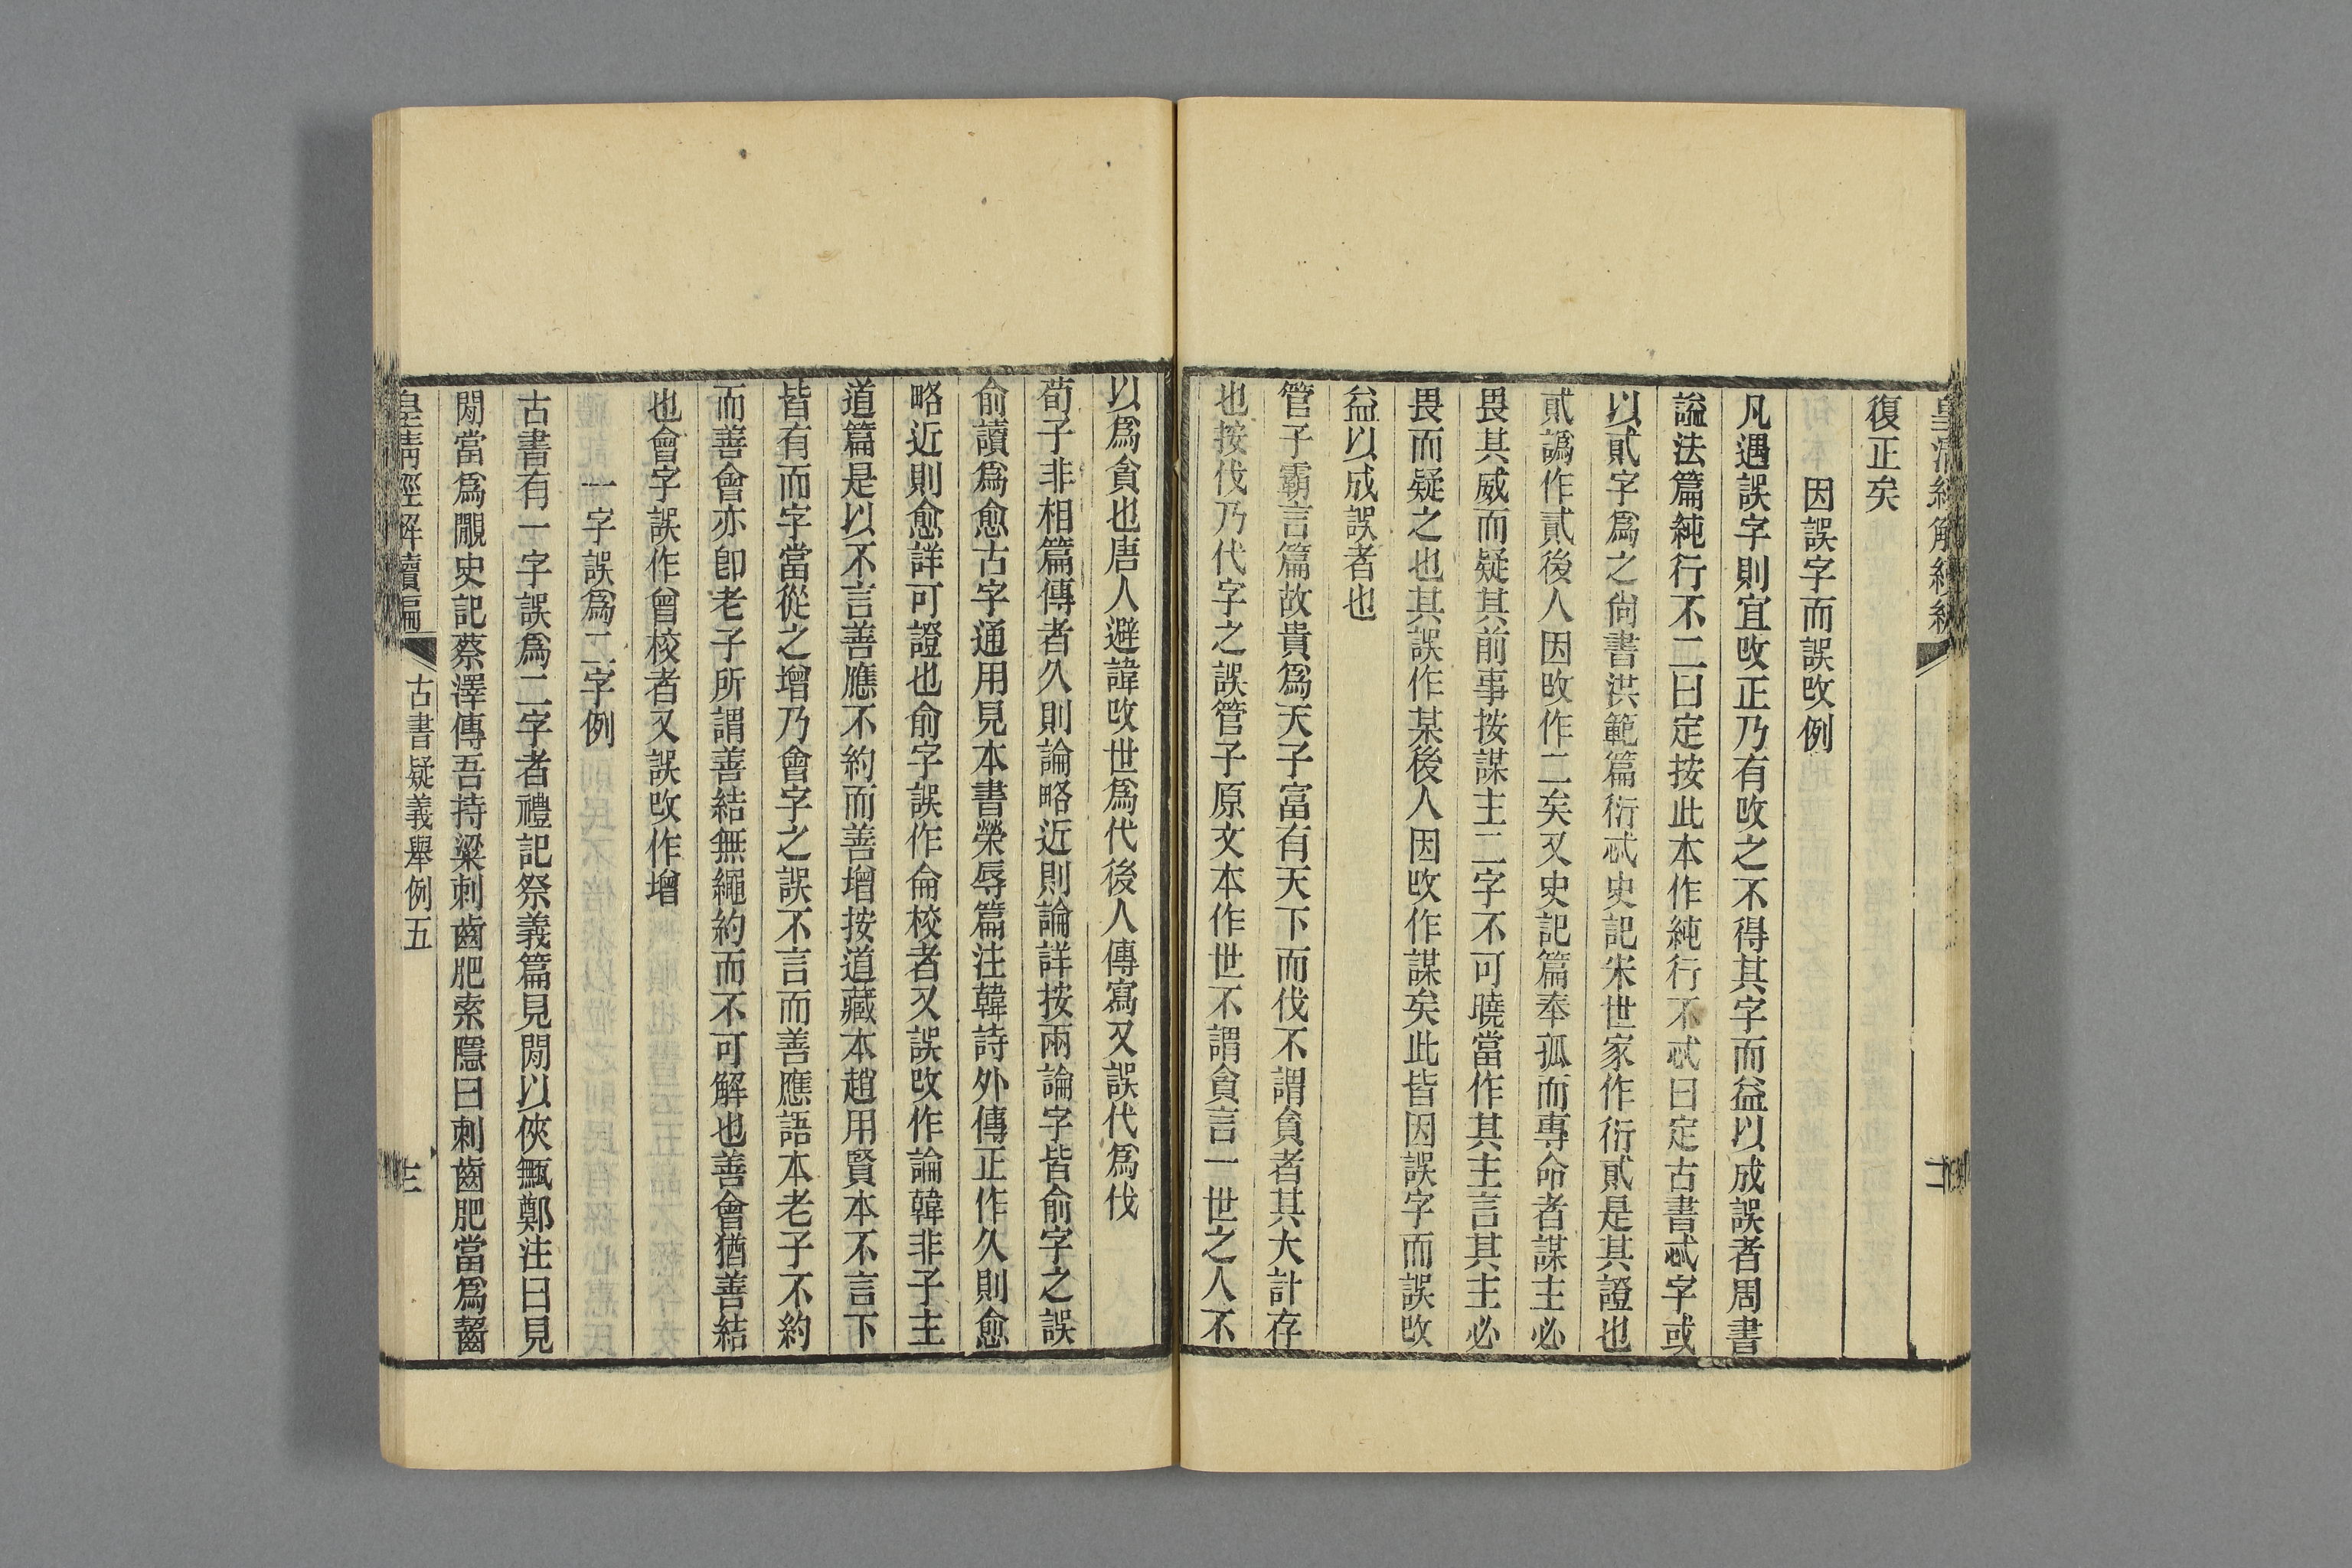 皇清經解續編
復正矣
因誤字而誤改例
凡遇誤字則宜改正乃有改之不得其字而益以成誤者周書
謚法篇純行不二曰定按此本作純行不忒曰定古書忒字或
以貳字爲之尙書洪範篇衍忒史記宋世家作衍貳是其證也
貳譌作貳後人因改作二矣又史記篇奉孤而專命者謀主必
畏其威而疑其前事按謀主二字不可曉當作其主言其主必
畏而疑之也其誤作某後人因改作謀矣此皆因誤字而誤改
益以成誤者也
管子霸言篇故貴爲天子富有天下而伐不謂貪者其大計存
也按伐乃代字之誤管子原文本作世不謂貪言一世之人不
以爲貪也唐人避諱改世爲代後人傳寫又誤代爲伐
荀子非相篇傳者久則論略近則論詳按兩論字皆俞字之誤
俞讀爲愈古字通用見本書榮辱篇注韓詩外傳正作久則愈
略近則愈詳可證也俞字誤作侖校者又誤改作論韓非子主
道篇是以不言善應不約而善增按道藏本趙用賢本不言下
皆有而字當從之增乃會字之誤不言而善應語本老子不約
而善會亦卽老子所謂善結無繩約而不可解也善會猶善結
也會字誤作曾校者又誤改作增
一字誤爲二字例
古書有一字誤爲二字者禮記祭義篇見閒以俠甒鄭注曰見
閒當爲覵史記蔡澤傳吾持粱刺齒肥索隱曰刺齒肥當爲齧
皇淸經解續編
古書疑義舉例五